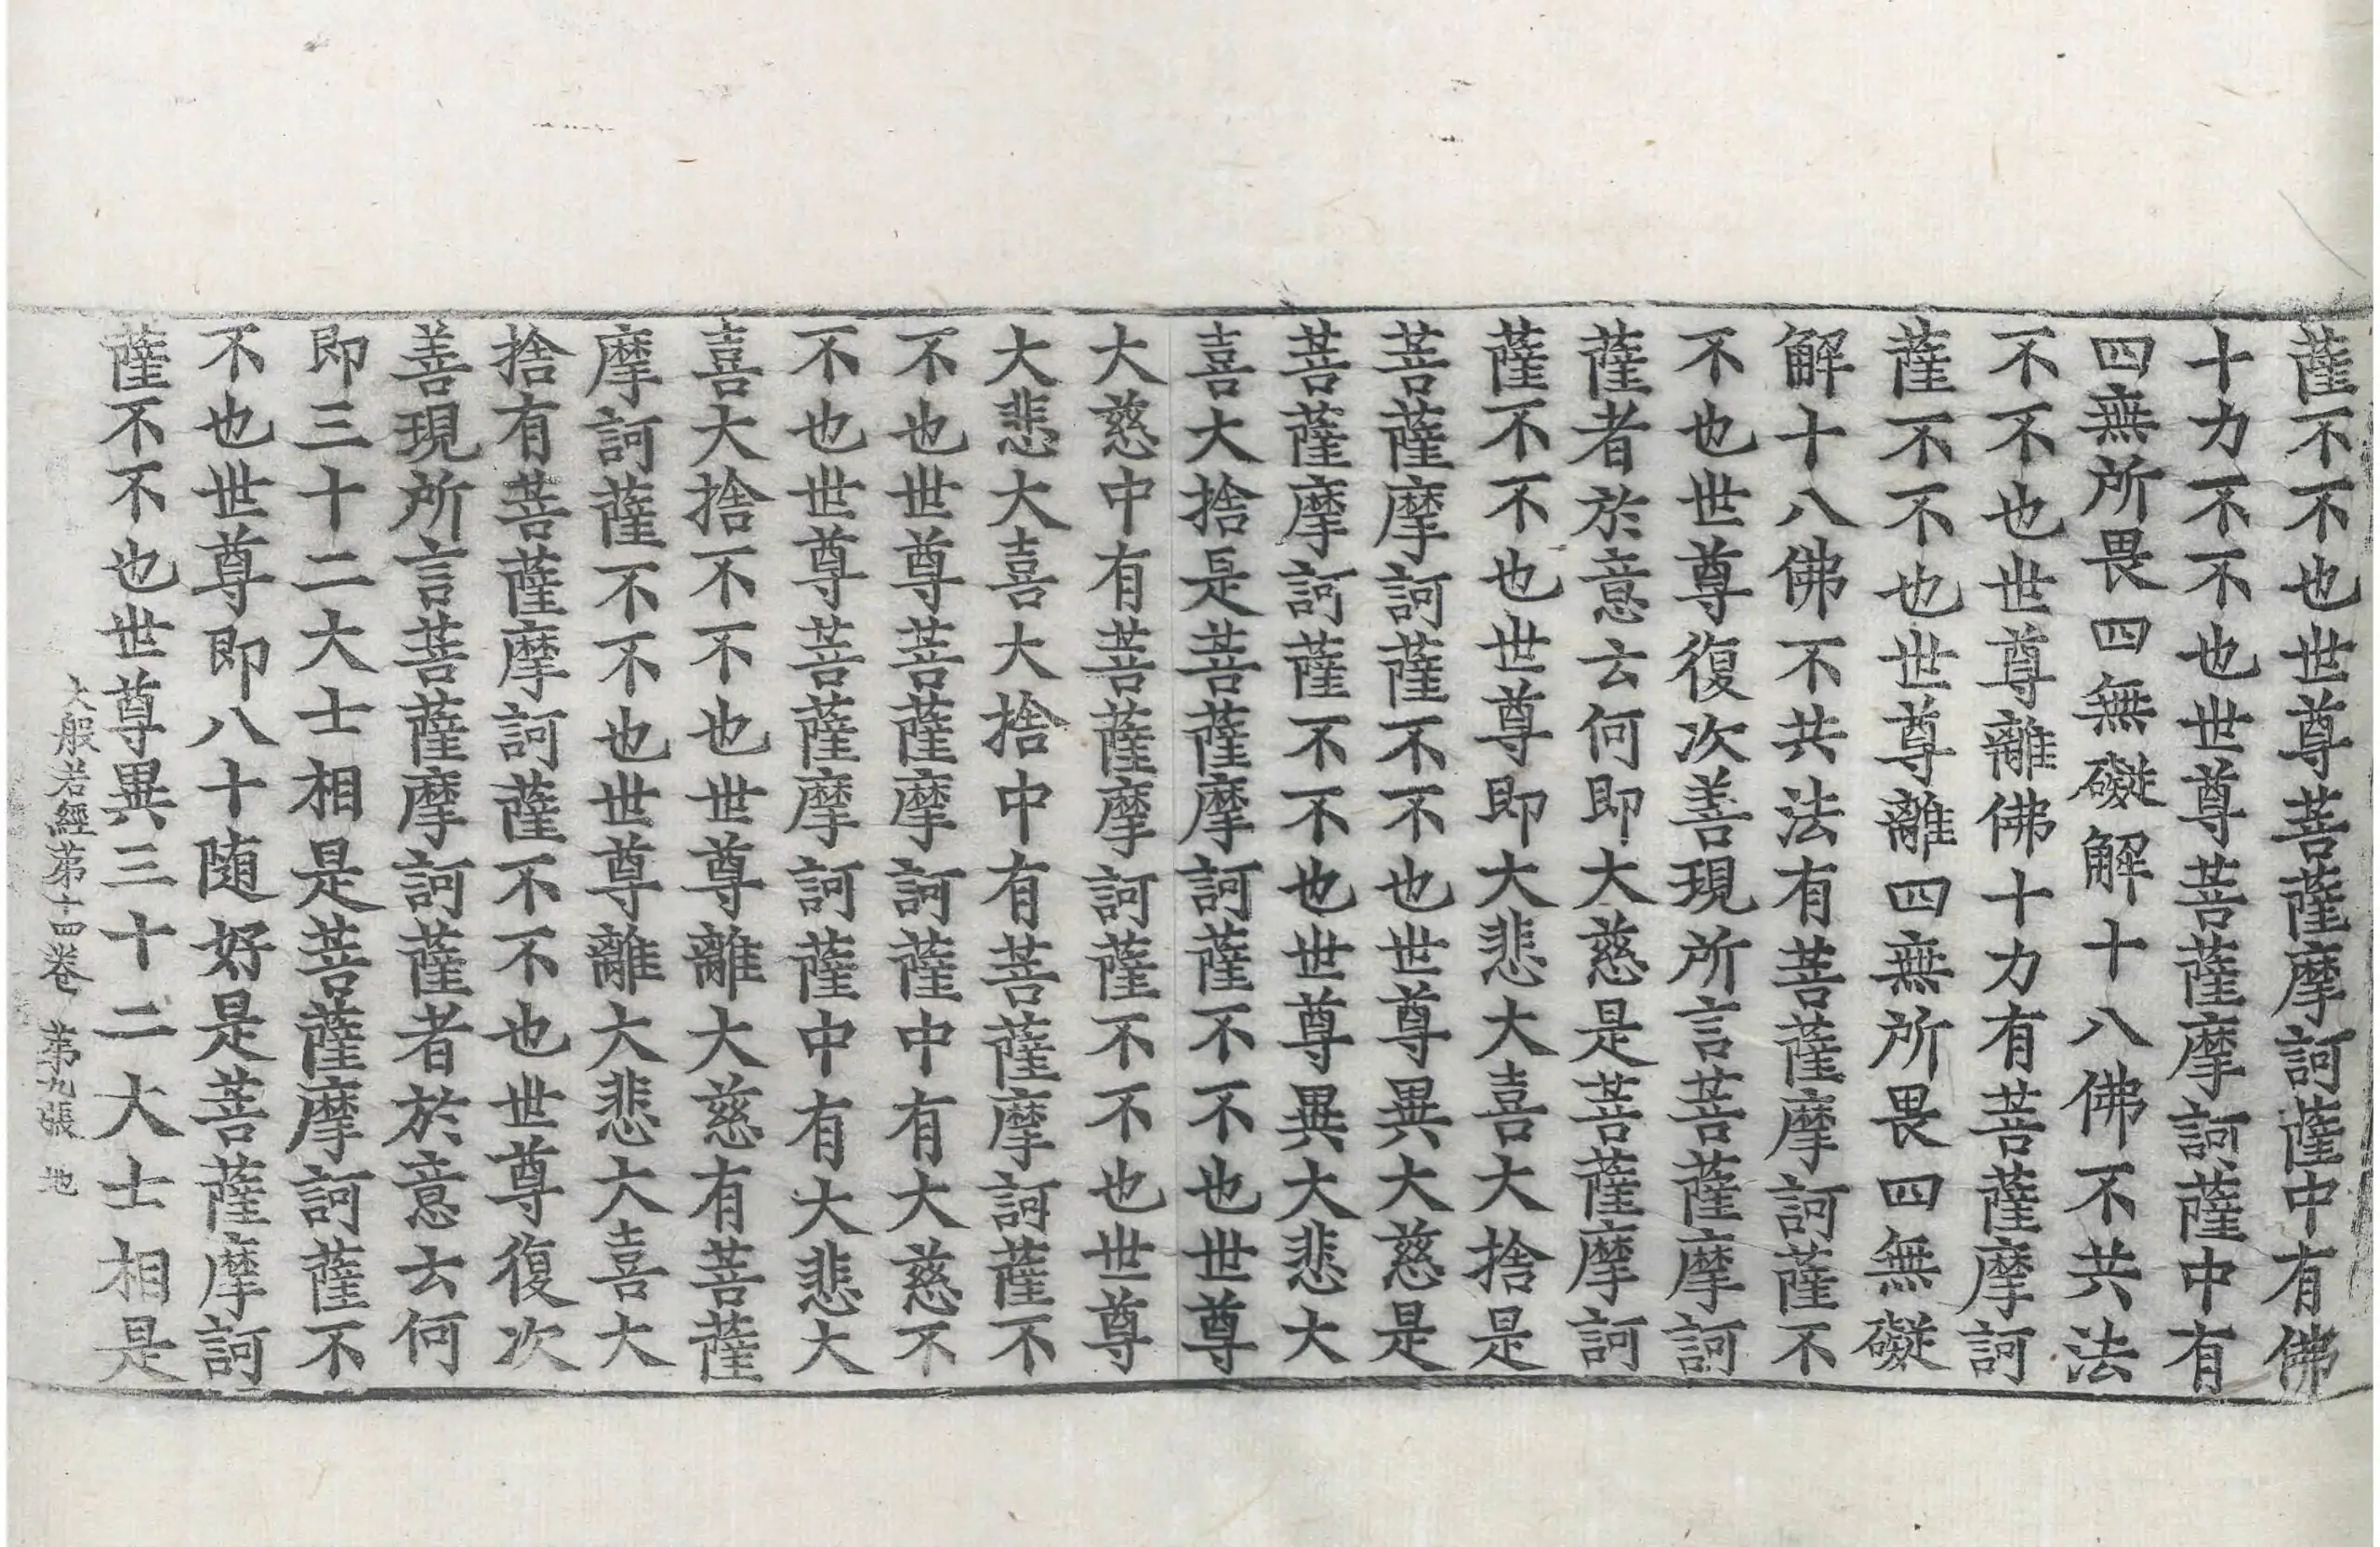 薩不不也世尊菩薩摩訶薩中有佛
十力不不也世尊菩薩摩訶薩中有
四無所畏四無礙解十八佛不共法
不不也世尊離佛十力有菩薩摩訶
薩不不也世尊離四無所畏四無礙
解十八佛不共法有菩薩摩訶薩不
不也世尊復次善現所言菩薩摩訶
薩者於意云何即大慈是菩薩摩訶
薩不不也世尊即大悲大喜大捨是
菩薩摩訶薩不不也世尊異大慈是
菩薩摩訶薩不不也世尊異大悲大
喜大捨是菩薩摩訶薩不不也世尊
大慈中有菩薩摩訶薩不不也世尊
大悲大喜大捨中有菩薩摩訶薩不
不也世尊菩薩摩訶薩中有大慈不
不也世尊菩薩摩訶薩中有大悲大
喜大捨不不也世尊離大慈有菩薩
摩訶薩不不也世尊離大悲大喜大
捨有菩薩摩訶薩不不也世尊復次
善現所言菩薩摩訶薩者於意云何
即三十二大士相是菩薩摩訶薩不
不也世尊即八十随好是菩薩摩訶
薩不不也世尊異三十二大士相是
大般若經第十四卷 第九張 地